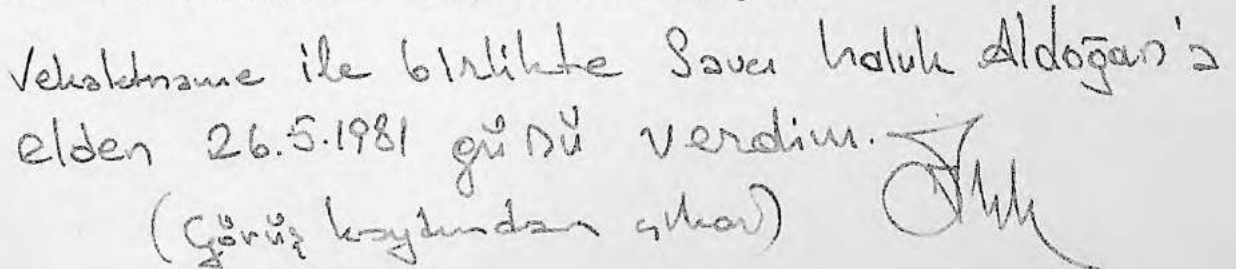 Vekaletname ile birlikte Savcı Haluk Aldoğan'a
elden 26.5.1981 günü verdim.
(Görüş kaydından çıkar)